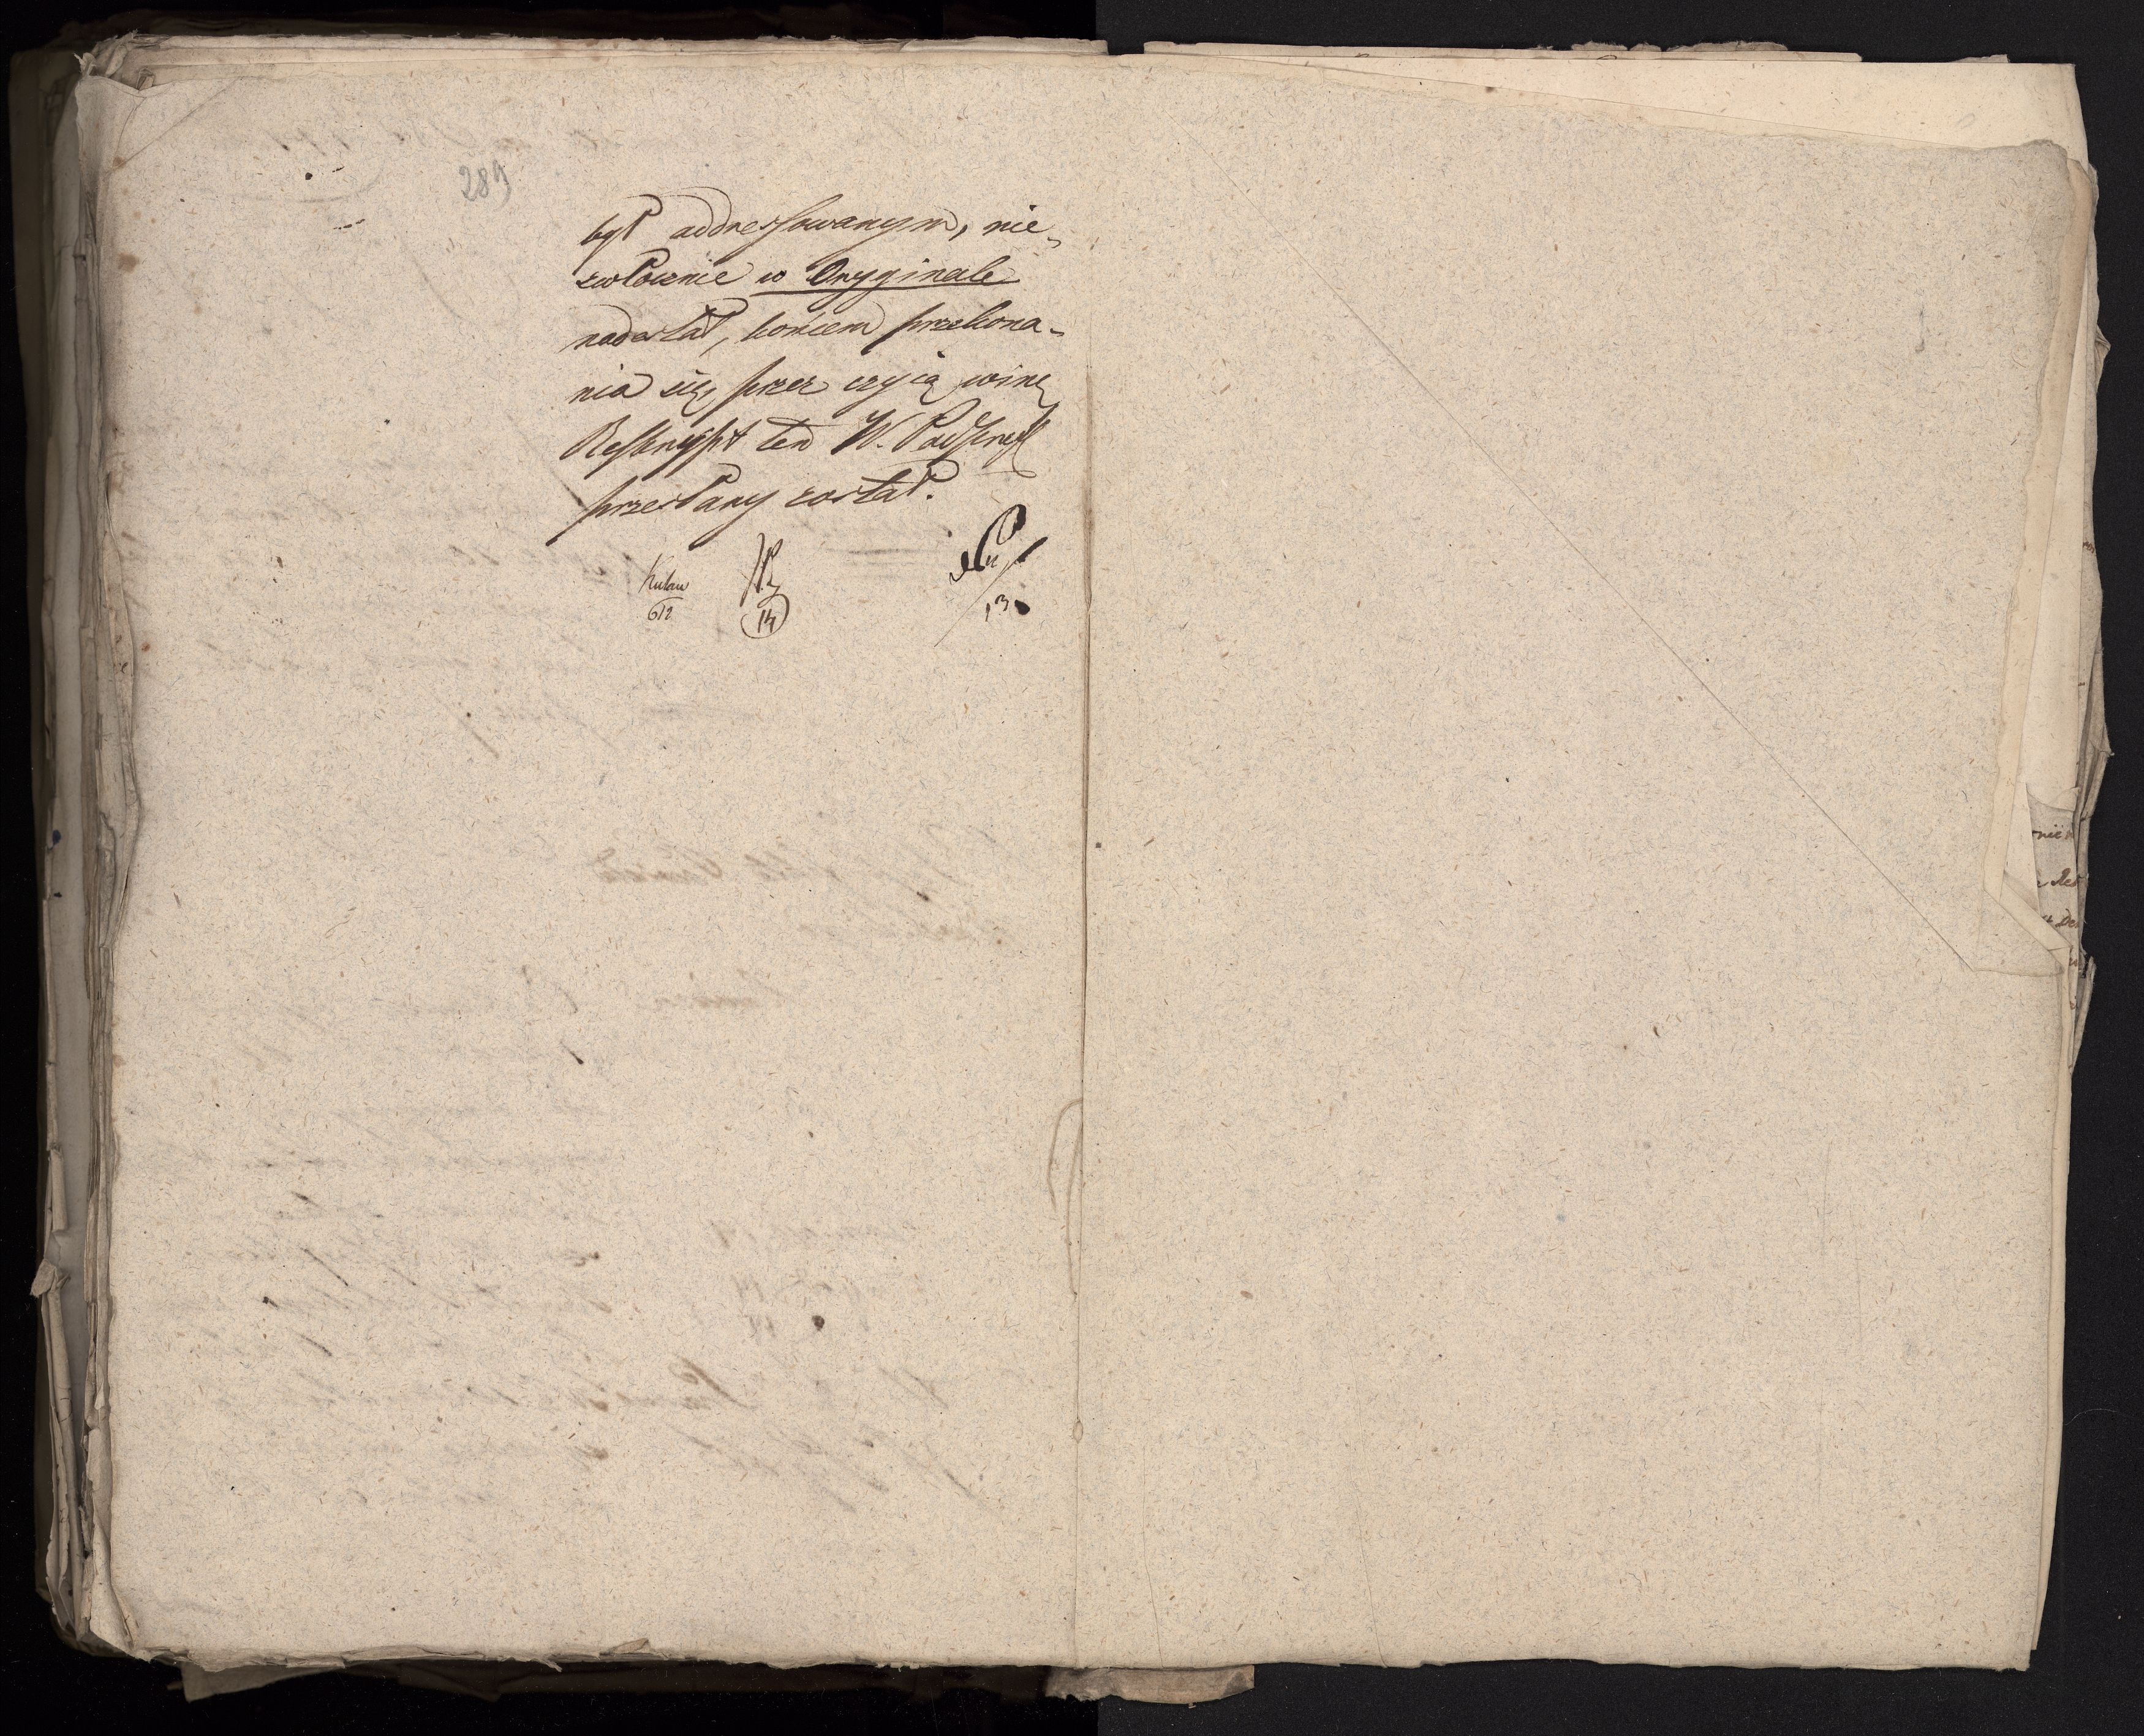 289
był addressowanym, nie-
zwłocznie w Oryginale
nadesłał, końcem przekona-
nia się, przez czyią winę
Reskrypt ten W. Podpref
przesłany został.
6/12
14
13